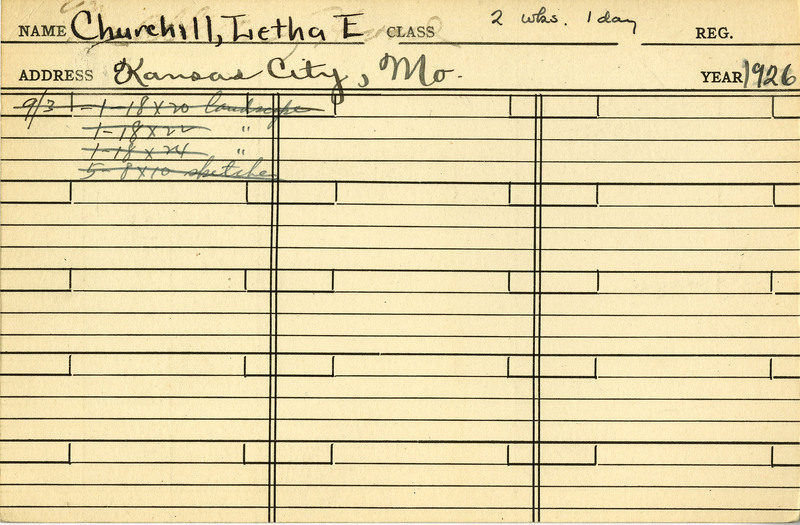 NAME Churchill, Letha E CLASS 2 wks. 1 day REG.
ADDRESS Kansas City, Mo. YEAR 1926
9/3 - 1 - 18 x 20 landscape
1 - 18 x 22 "
1 - 18 x 24 "
5 - 8 x 10 sketches